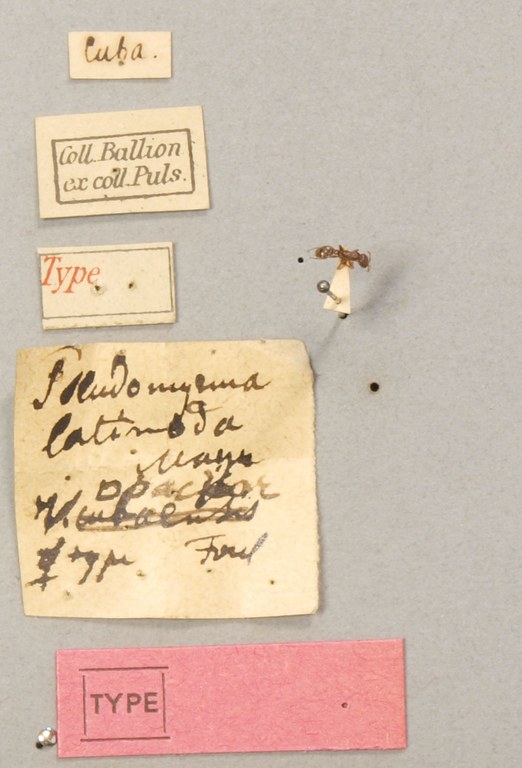 Cuba.
Coll. Ballion
ex coll. Puls.
Type
Pseudomyrma
latinoda
Mayr
opacior
V. cubaensis
☿ type Forel
TYPE